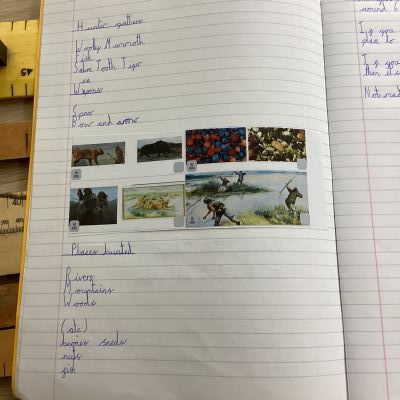 Hunter gathers
Woolly Mammoth
Fish
Sabre Tooth Tiger
Wepons
Spear
Bow and arrow
Places hunted
Rivers
Mountains
Woods
(ate)
berries seeds
nuts
fish
around
I g you
place to
I g you
then it
Not mad
45